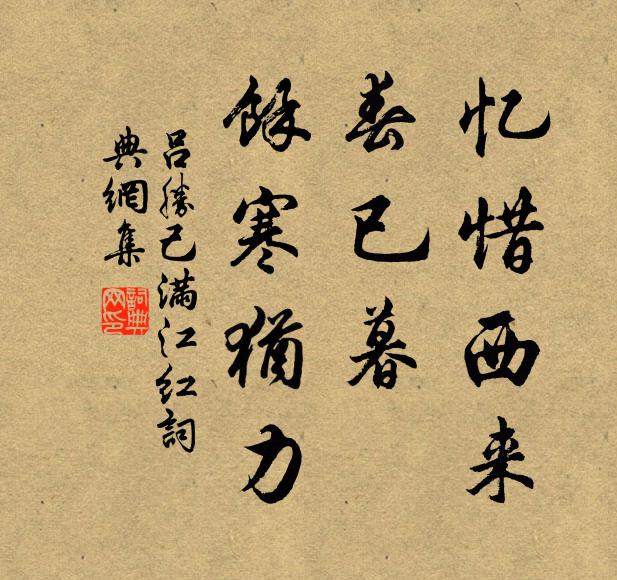 忆惜西来
春已暮
馀寒犹力
吕勝己满江红詞
典網集
詞典
网印